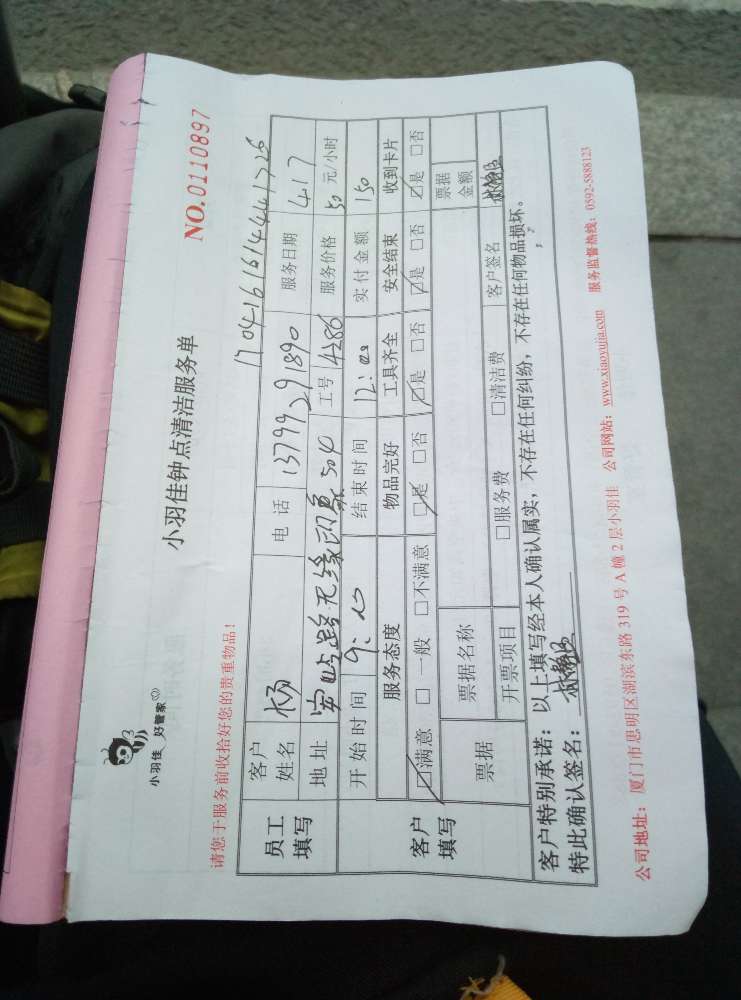 小羽佳 好管家
小羽佳钟点清洁服务单
NO.0110897
请您于服务前收拾好您的贵重物品！
1704161614441725
员工填写
客户姓名 杨 电话 13799291890 服务日期 417
地址 安岭路无缘印象504 工号 4286 服务价格 50 元/小时
开始时间 9:00 结束时间 12:00 实付金额 150
客户填写
服务态度 物品完好 工具齐全 安全结束 收到卡片
☑满意 □一般 □不满意 ☑是 □否 ☑是 □否 ☑是 □否 ☑是 □否
票据 票据名称 票据金额
开票项目 □服务费 □清洁费 客户签名
客户特别承诺：以上填写经本人确认属实，不存在任何纠纷，不存在任何物品损坏。
特此确认签名：
公司地址：厦门市思明区湖滨东路 319 号 A 幢 2 层小羽佳 公司网站：www.xiaoyujia.com 服务监督热线：0592-5888123